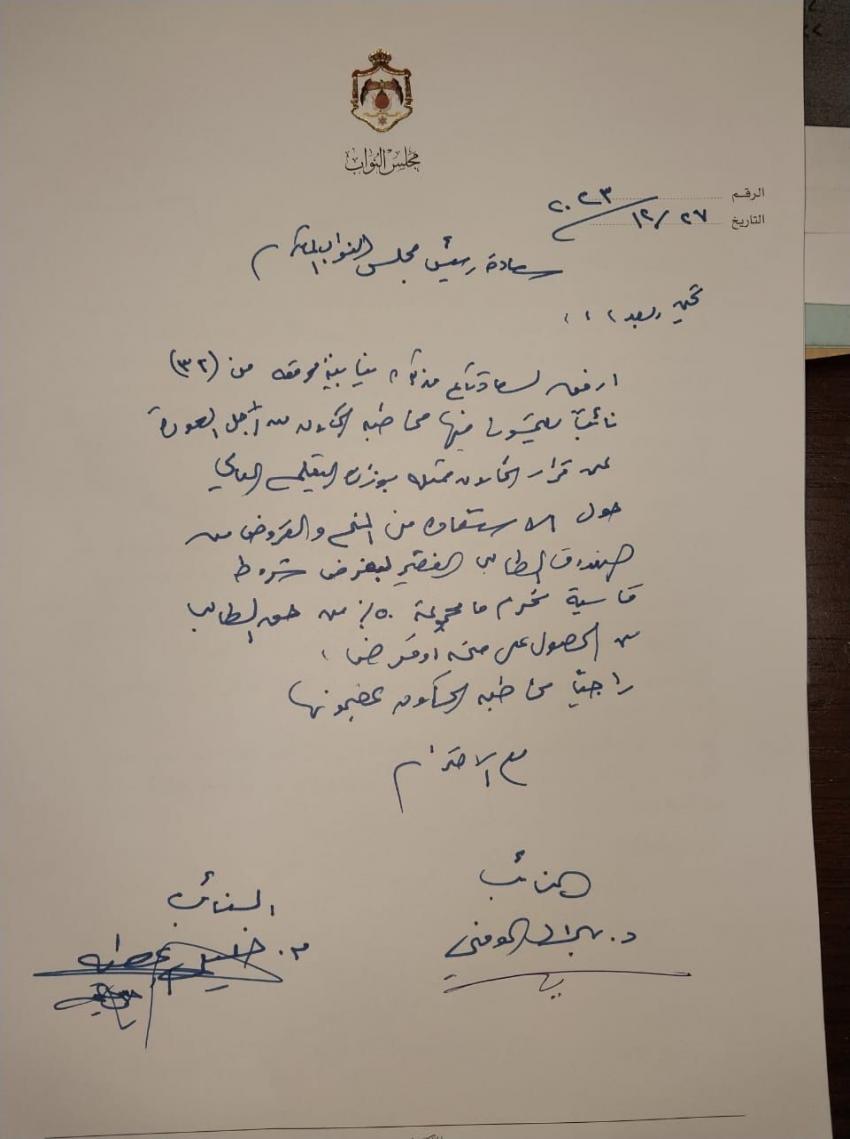 مجلس النواب
الرقم
التاريخ ٢٧ / ١٢ / ٢٠٢٣
سعادة رئيس مجلس النواب المكرم
تحية وبعد ،،،
ارفق لسعادتكم مذكرة نيابية موقعه من (٣٢)
نائباً يلتمسون فيها مخاطبه الحكومه من أجل العودة
عن قرار الحكومه ممثله بوزارة التعليم العالي
حول الاستفاده من المنح والقروض من
صندوق الطالب الفقير لبفرض شروط
قاسية تحرم ما مجموعة ٥٠٪ من حق الطالب
من الحصول على منحه أو قرض ،
راجياً مخاطبه الحكومه بمضمونها
مع الاحترام
النائب
د. المومني
النائب
م. خليل عطيه